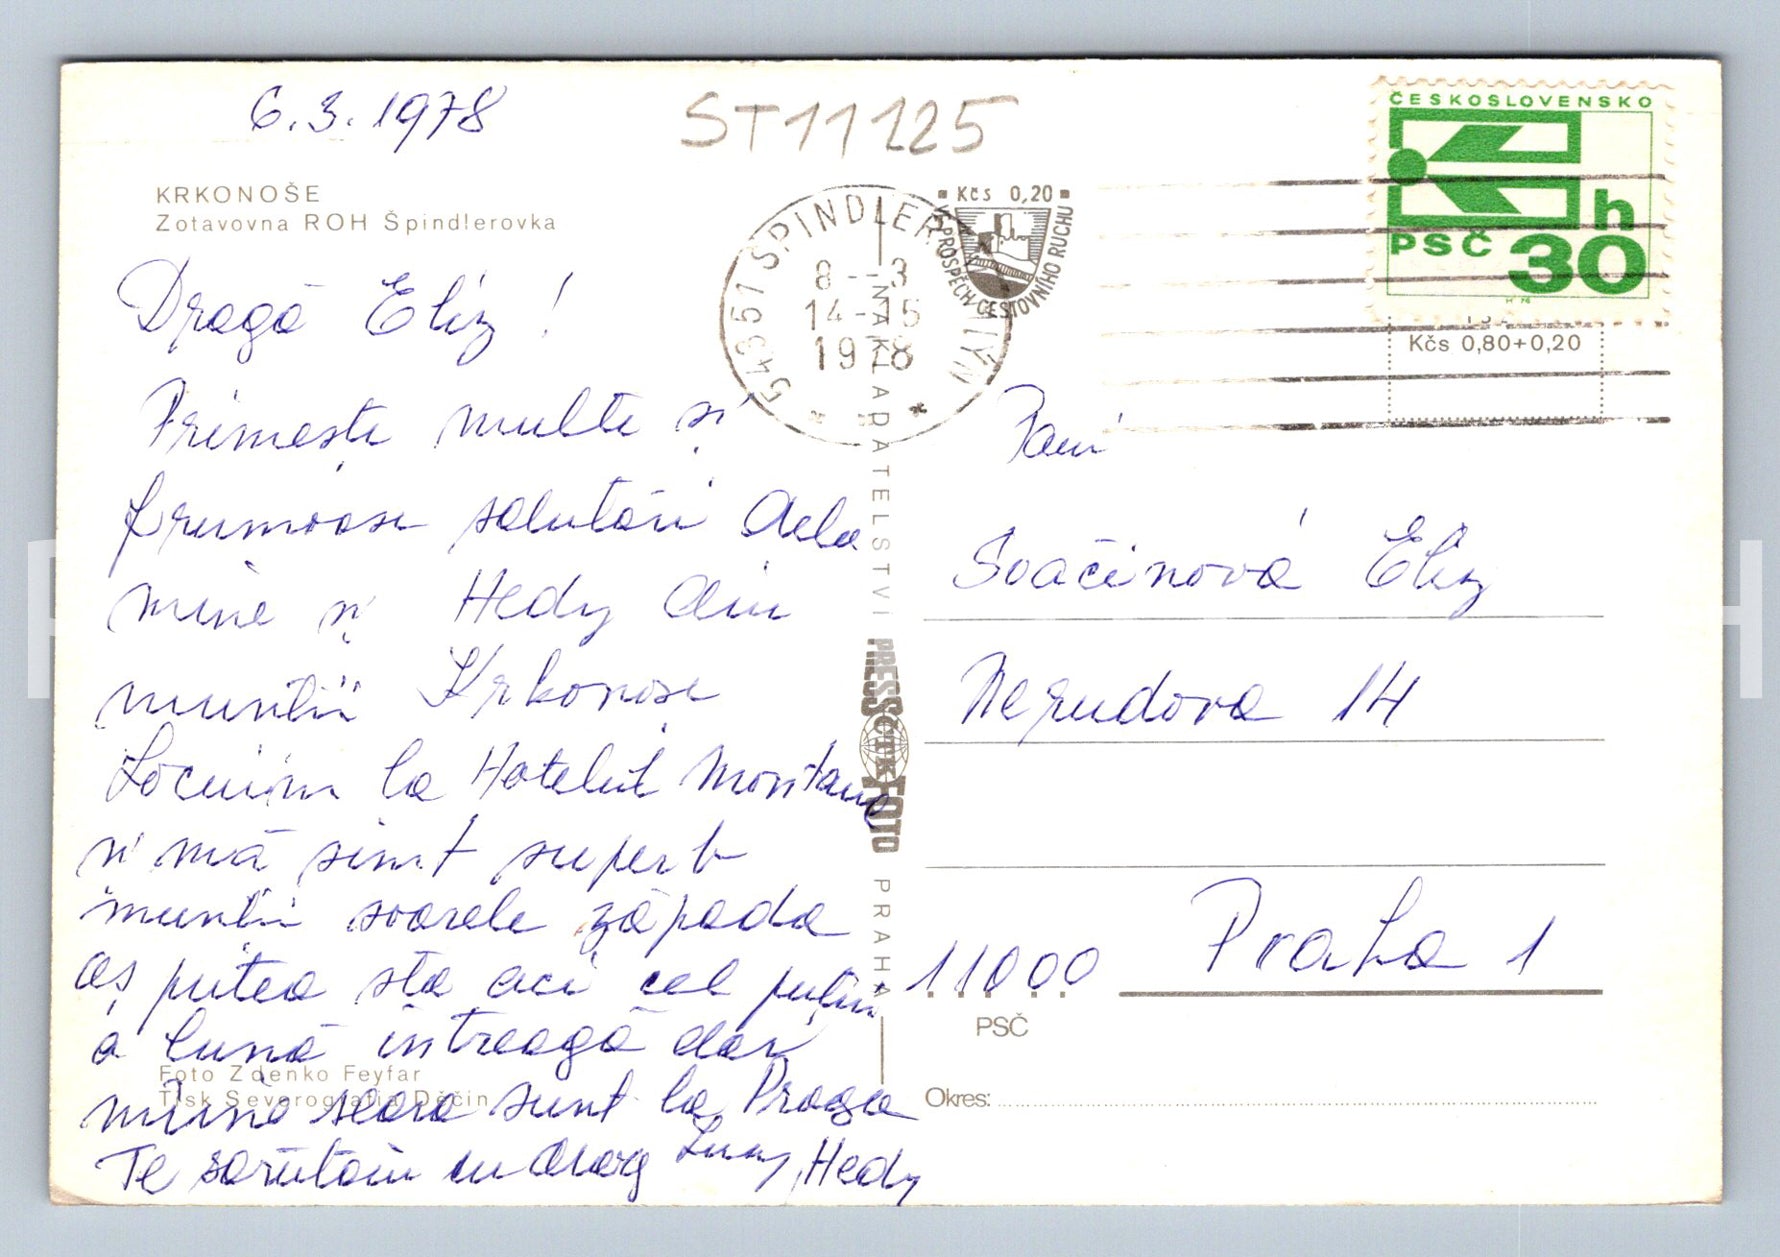 6.3.1978
ST11125
KRKONOŠE
Zotavovna ROH Špindlerovka
Dragă Eliz!
Primeste multe și
frumoase salutări dela
mine și Hedy din
munții Krkonose
Locuim la Hotelul Montana
și mă simt superb
munții soarele zăpada
aș putea sta aci cel puțin
o lună întreagă dar
mîine seara sunt la Praga
Te sărutăm cu drag Lucy, Hedy
Foto Zdenko Feyfar
Tisk Severografia Děčín
543 51 SPINDLER MLÝN
8.-3
14-15
1978
Kčs 0,20
VE PROSPĚCH CESTOVNÍHO RUCHU
NAKLADATELSTVÍ
PRESSFOTO
ČTK
PRAHA
ČESKOSLOVENSKO
h
PSČ 30
Kčs 0,80+0,20
Paní
Svačinová Eliz
Nerudova 14
11000 Praha 1
PSČ
Okres: